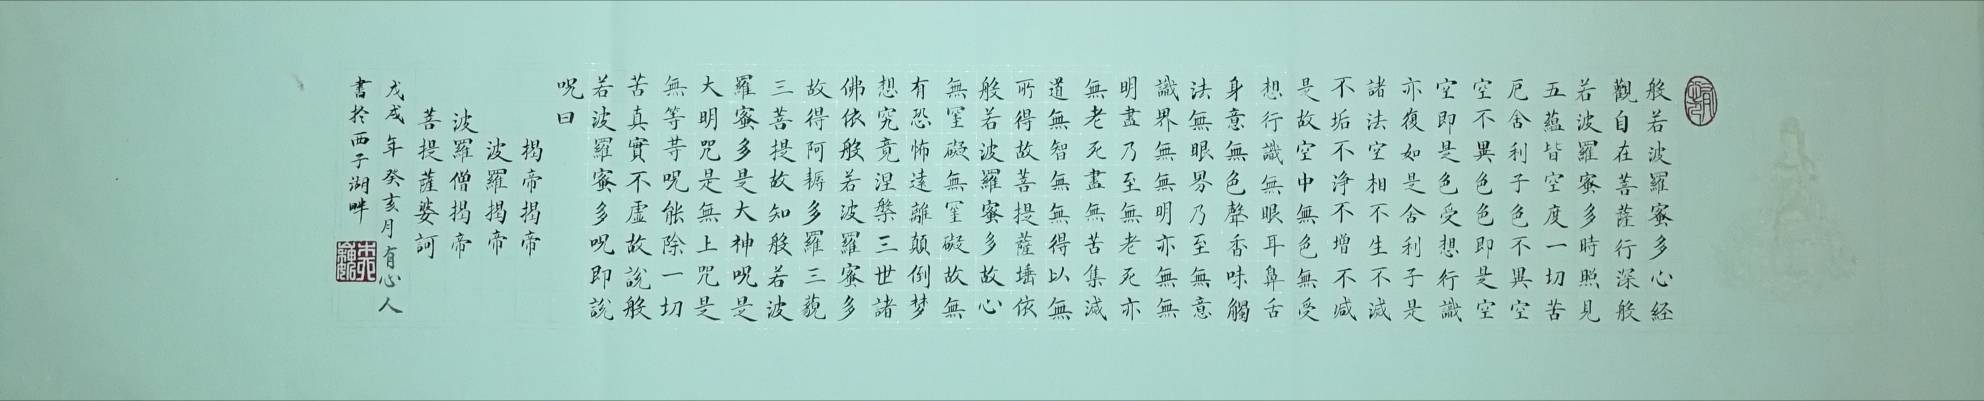 般若波羅蜜多心経
觀自在菩薩行深般
若波羅蜜多時照見
五蘊皆空度一切苦
厄舍利子色不異空
空不異色色即是空
空即是色受想行識
亦復如是舍利子是
諸法空相不生不滅
不垢不淨不增不減
是故空中無色無受
想行識無眼耳鼻舌
身意無色聲香味觸
法無眼界乃至無意
識界無無明亦無無
明盡乃至無老死亦
無老死盡無苦集滅
道無智無無得以無
所得故菩提薩埵依
般若波羅蜜多故心
無罣礙無罣礙故無
有恐怖遠離顛倒梦
想究竟涅槃三世諸
佛依般若波羅蜜多
故得阿耨多羅三藐
三菩提故知般若波
羅蜜多是大神呪是
大明咒是無上咒是
無等等呪能除一切
苦真實不虛故說般
若波羅蜜多呪即說
呪曰
揭帝揭帝
波羅揭帝
波羅僧揭帝
菩提薩婆訶
戊戌年癸亥月有心人
書於西子湖畔